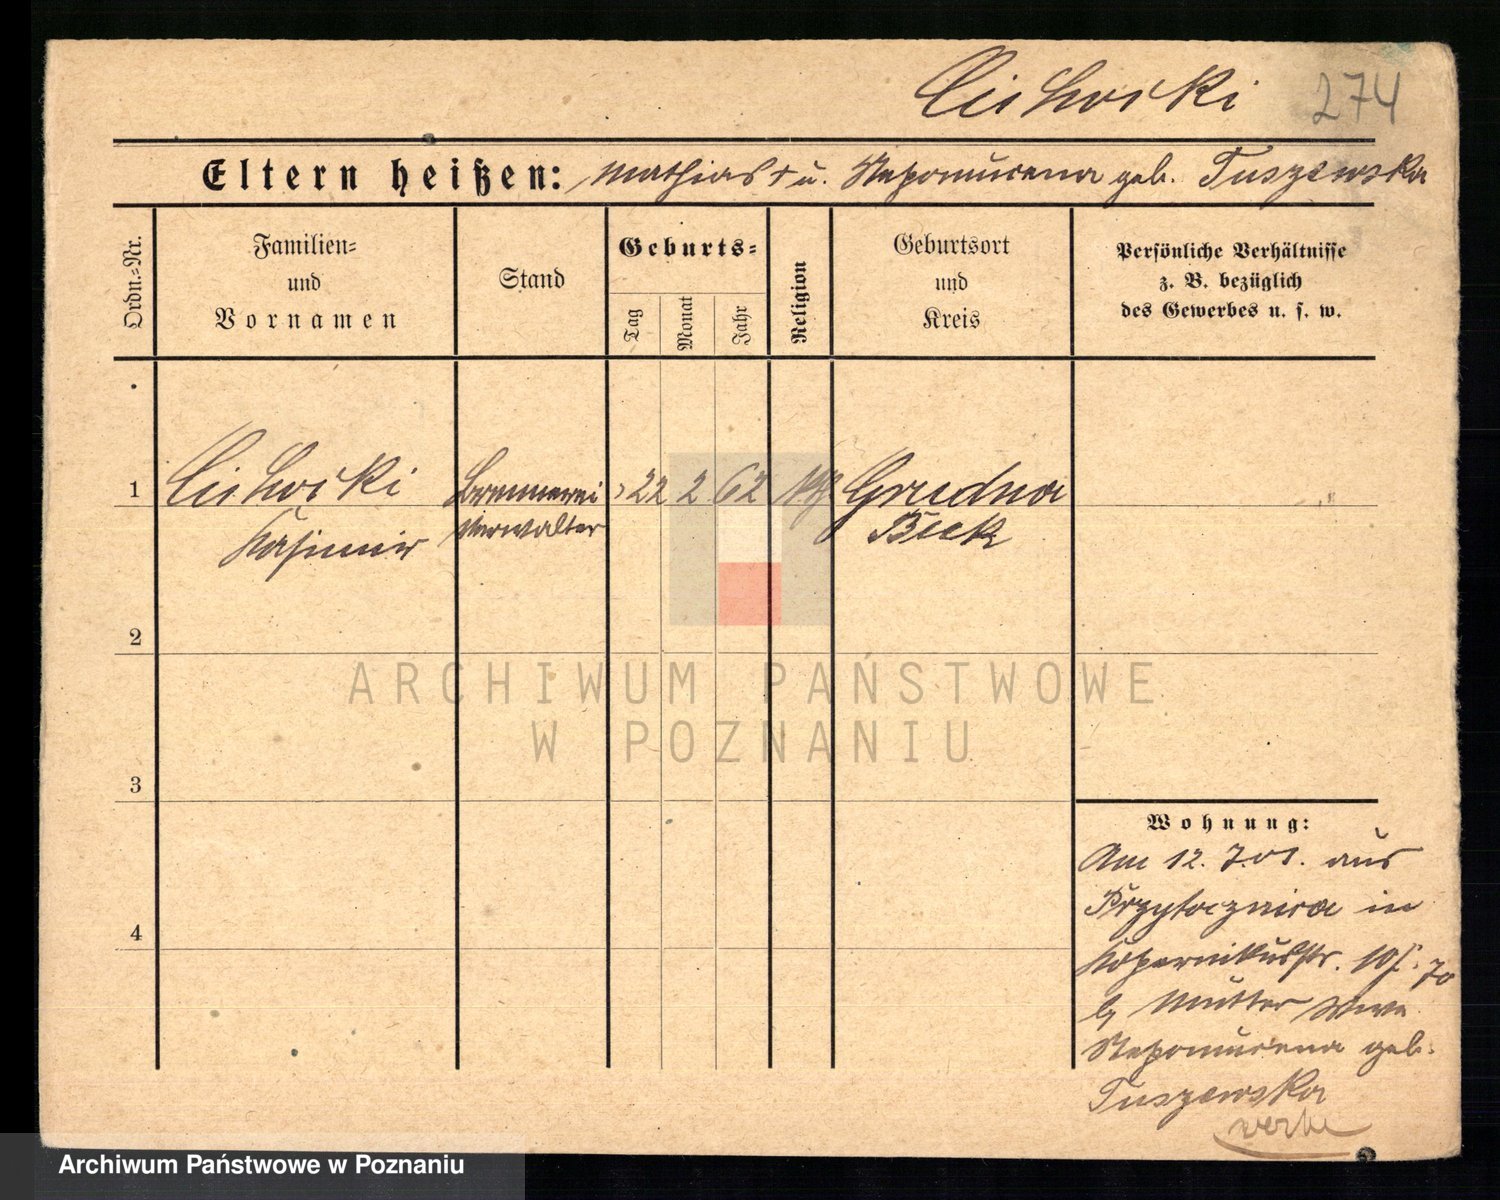 Cichocki 274
Eltern heißen: Mathias † u. Nepomucena geb. Tuszewska
Ordn.-Nr.
Familien-
und
Vornamen
Stand
Geburts-
Tag
Monat
Jahr
Religion
Geburtsort
und
Kreis
Persönliche Verhältnisse
z. B. bezüglich
des Gewerbes u. s. w.
1 Cichocki Brennerei 22 2 62 Grudna
Kasimir Verwalter
2
3
4
ARCHIWUM PAŃSTWOWE
W POZNANIU
Wohnung:
Am 12. 7.01. aus
Przytocznica in
Kopernikusstr. 10
b/ Mutter Wwe
Nepomucena geb.
Tuszewska
Archiwum Państwowe w Poznaniu